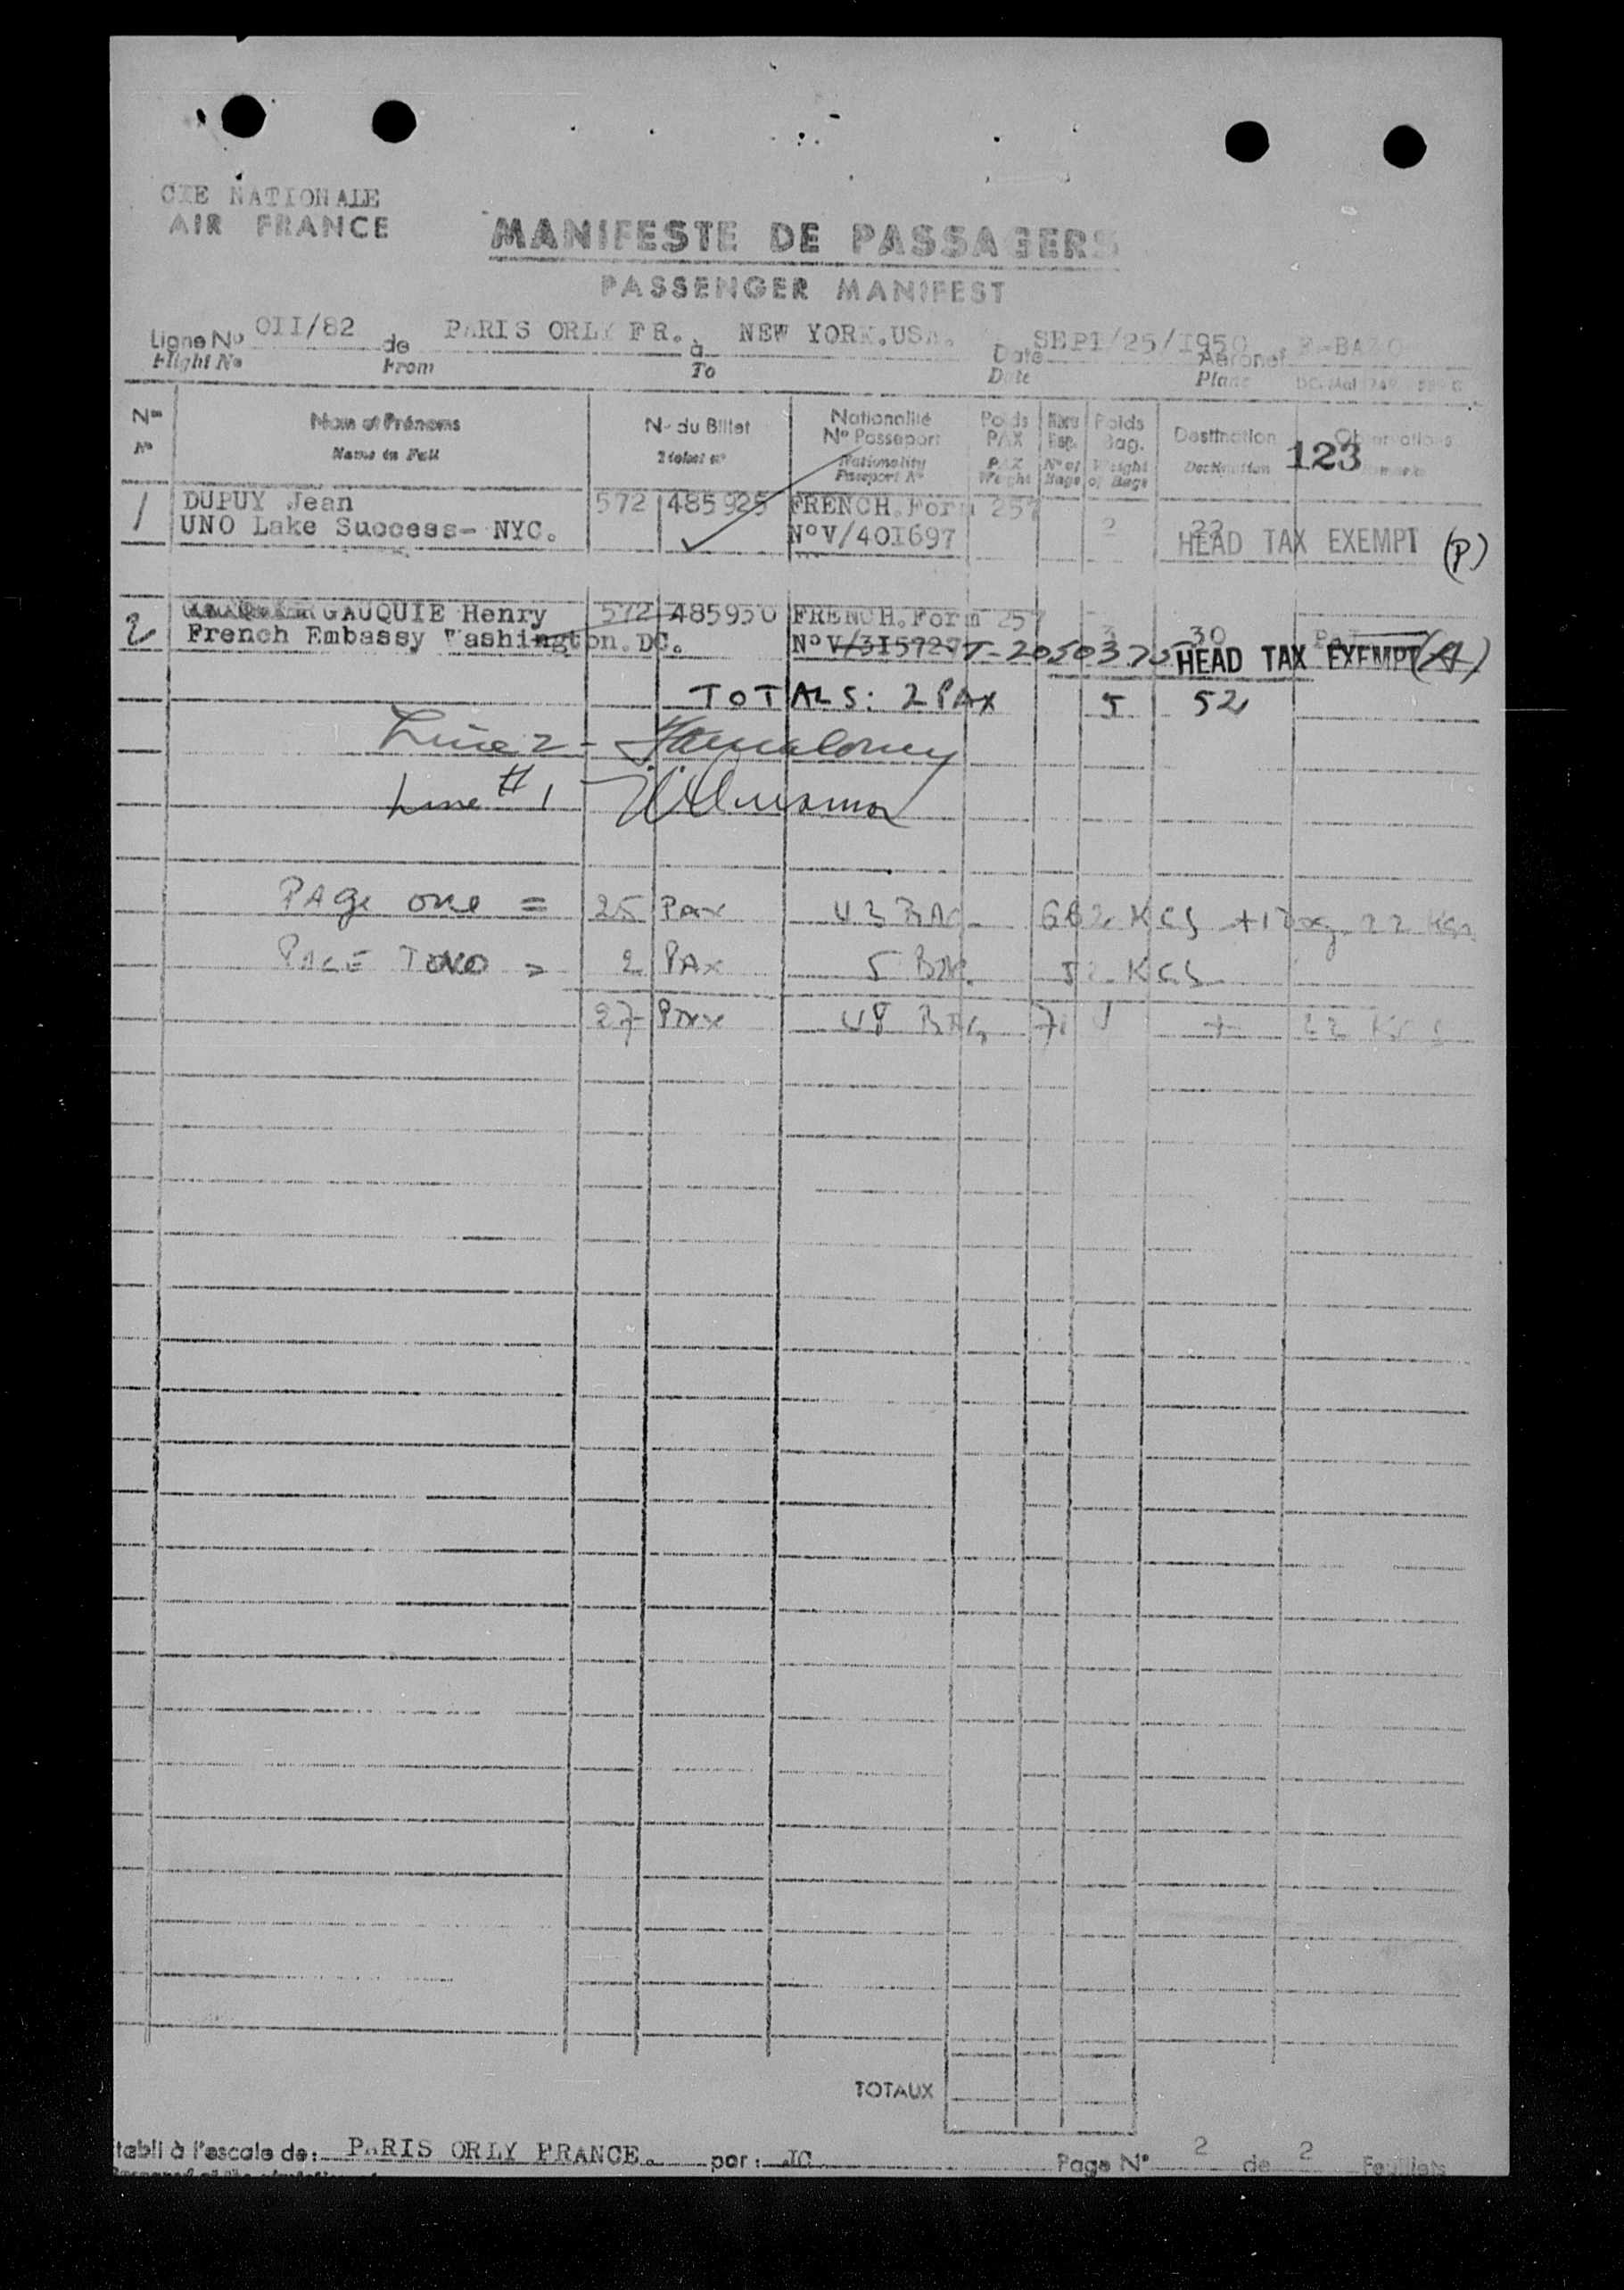 CIE NATIONALE
AIR FRANCE
MANIFESTE DE PASSAGERS
PASSENGER MANIFEST
Ligne No OII/82 de PARIS ORLY FR. à NEW YORK.USA. Date SEPT/25/1950 Aéronef F-BAZO
Flight No From To Date Plane
Nos Nom et Prénoms No du Billet Nationalité Poids Poids Destination Observations
No Passeport PAX Bag.
No Name in Full Ticket no Nationality PAX No of Weight Destination 123
Passport No Weight Bags of Bags
1 DUPUY Jean 572 485925 FRENCH.Form 257
UNO Lake Success- NYC. NoV/40I697 2 22 HEAD TAX EXEMPT (P)
2 GAUQUIE Henry 572 485930 FRENCH.Form 257
French Embassy Washington.DC. NoV/3I5727 T-2050375 3 30 HEAD TAX EXEMPT (A)
TOTALS: 2 PAX 5 52
Line 2 -
Line #1
PAge one = 25 Pax 43 BAG 662 KGS + 22 KGS
PAGE TWO = 2 PAX 5 BAG. 52 KGS
27 PAX 48 BAG 71 + 22 KGS
TOTAUX
tabli à l'escale de: PARIS ORLY FRANCE. par: JC Page No 2 de 2 Feuillets